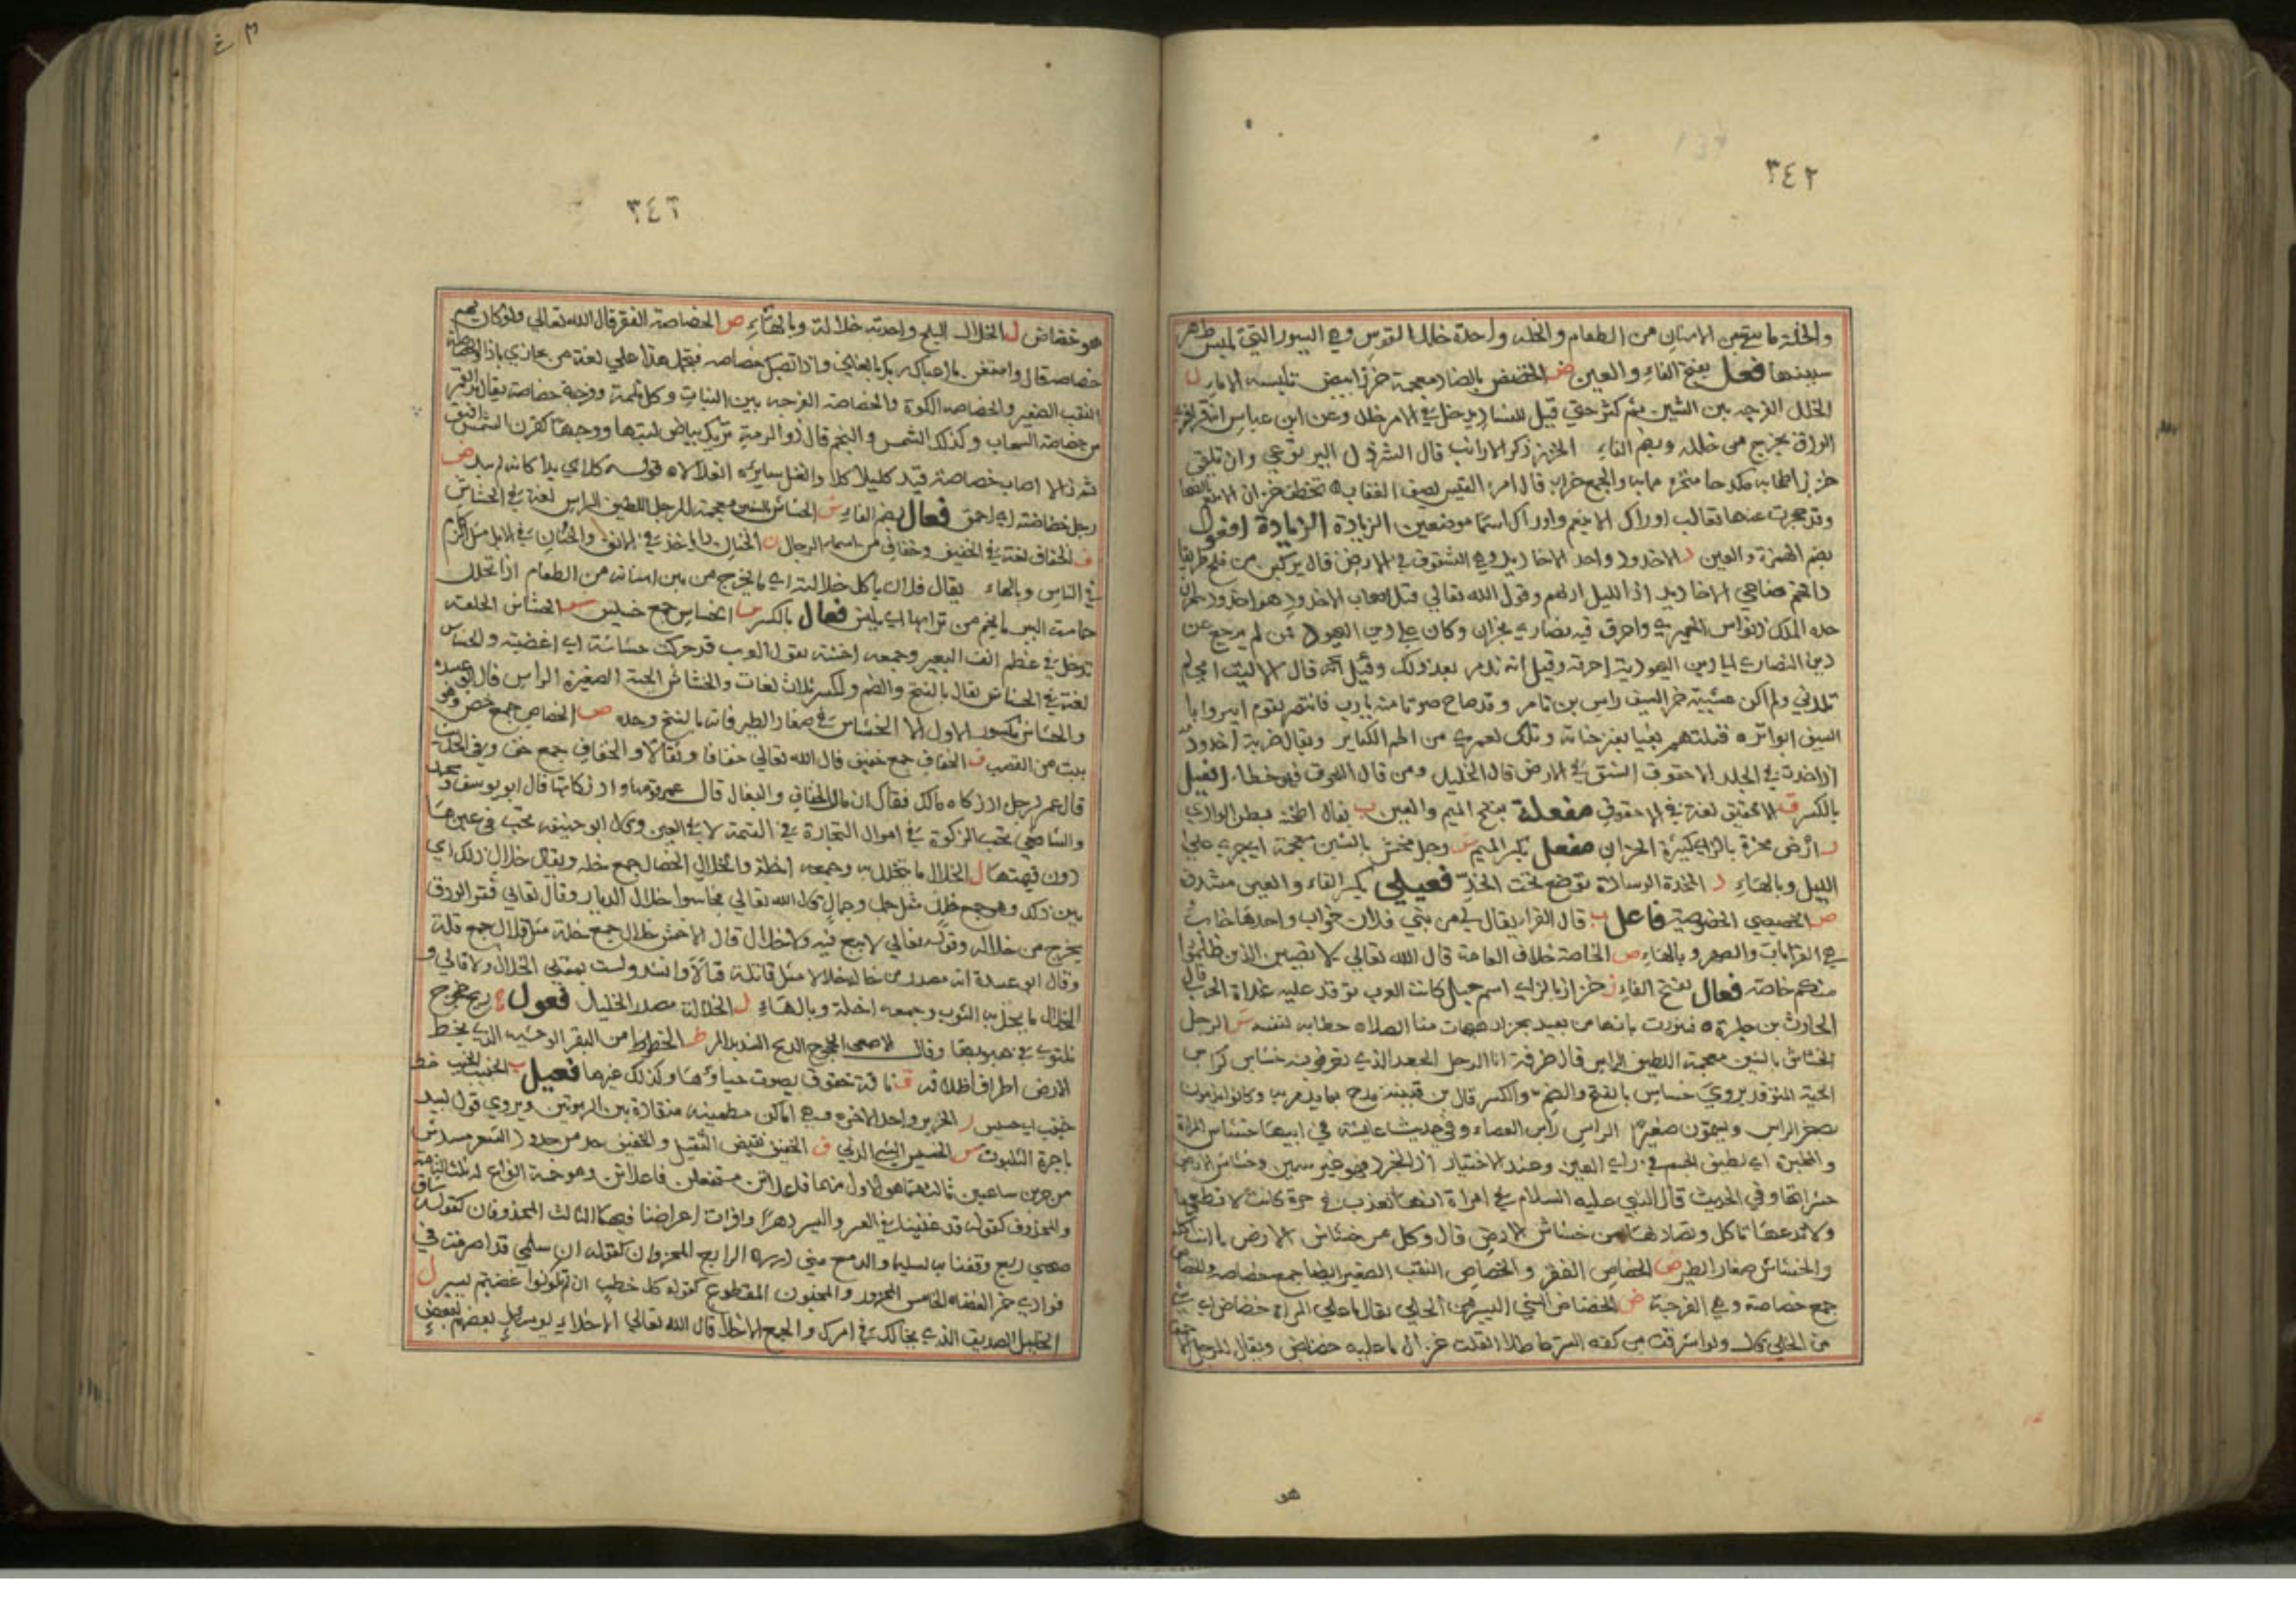 ٣٤٢
والخلة ما يبقى بين الاسنان من الطعام والخلة واحدة خلل القوس وهي السيور التي تلبس ظهر
سيتها فعل بفتح الفاء والعين ض الخضض بالضاد معجمة خرز ابيض تلبسه الاماء ل
الخلل الفرجه بين الشين ثم كثر حتى قيل للفساد يدخل في الامر خلل وعن ابن عباس انه قرا فترى
الودق يخرج من خلله وبضم الفاء الخزز ذكر الارانب قال الشرف ل
مآب والجمع خزان قال امرء القيس يصف العقاب تخطف خزان
وقد جحرت عنها ثعالب اورال الانيعم واورال اسما موضعين الزيادة الزيادة افعول
بضم الهمزة والعين د الاخدود واحد الاخاديد وهي الشقوق في الارض قال يركبن من فلج طريقا
ذا قحم ضاحي الاخاديد اذا الليل ادلهم وقول الله تعالى قتل اصحاب الاخدود هو اخدود نجران
خده الملك ذو نواس الحميري واحرق فيه نصارى نجران وكان على دين اليهود فمن لم يرجع عن
دين النصارى الى دين اليهودية احرقه وقيل انه ندم بعد ذلك وقيل انه قال الا ليت امي لم
تلدني ولم اكن عشية حز السيف راس بن تامر وقد صاح صوتا منه يا رب فانتصر لقوم ابيروا با
السيوف البواتر قتلتهم بغيا بغير جناية وتلك لعمري من اهم الكباير ويقال ضربة اخدود
اذا خدت في الجلد الاخقوق الشق في الارض قال الخليل ومن قال اللخقوق فهو خطاء افعيل
بالكسر ق الاخقيق لغة في الاخقوق مفعلة بفتح الميم والعين ب يقال المخبة بطن الوادي
ز ارض مخزة بالزاي كثيرة الخزان مفعل بكسر الميم ش رجل مخش بالشين معجمة اي جري على
الليل وبالهاء د المخدة الوسادة توضع تحت الخد فعيلي بكسر الفاء والعين مشددة
ص الخصيصي الخصوصية فاعل ب قال الفراء يقال لي من بني فلان خواب واحدها خاب
هي القرابات والصهر وبالهاء ص الخاصة خلاف العامة قال الله تعالى لا تصيبن الذين ظلموا
منكم خاصة فعال بفتح الفاء ز خزاز بالزاي اسم جبل كانت العرب توقد عليه غداة الحرب قال
الحارث بن حلزة فتنورت نارها من بعيد بخزاز هيهات منك الصلاء ش الرجل
الخشاش بالشين معجمة اللطيف الراس قال طرفة انا الرجل الجعد الذي تعرفونه خشاش كراس
الحية المتوقد يروى خشاش بالفتح والضم والكسر قال بن قتيبة مدح بما يذم به وكانوا يذمون
بصغر الراس ويسمون صغير الراس راس العصا وفي حديث عايشة في ابيها خشاش المراة
والمخبر اي لطيف الجسم في راي العين وعند الاختيار وخشاش الارض
حشراتها وفي الحديث قال النبي عليه السلام في امراة انها تعذب في هرة كانت لا تطعمها
ولا تدعها تاكل وتصاد لها من خشاش الارض قال وكل من خشاش الارض ما
والخشاش صغار الطير ص الخصاص الفقر والخصاص النقب الصغير ايضا جمع خصاصة والخصاص
جمع خصاصة وهي الفرجة ض الخضاض الشي اليسير من الحلي يقال ما على المراة خضاض اي شي
من الحلي قال ولو اشرفت من كفة الستر عاطلا لقلت غزال ما عليه خضاض ويقال للرجل الاحمق
هو
٣٤٦
هو خضاض ل الخلال البلح واحدته خلالة وبالهاء ص الخصاصة الفقر قال الله تعالى ولو كان بهم
خصاصة قال واستغن ما اغناك ربك بالغنى واذا تصبك خصاصة فتجمل هذا على لغة من يجازي باذا والخصاصة
النقب الصغير والخصاصة الكوة والخصاصة الفرجة بين النبات وكل ثلمة وفرجة خصاصة يقال بدا القمر
من خصاصة السحاب وكذلك الشمس والنجم قال ذو الرمة تريك بياض لبتها ووجهها كقرن الشمس افتق
ثم زالا اصاب خصاصة فبدا كليلا كلا وانغل سايره انغلالا قوله كلا اي بدا كانه لم يبد ض
رجل خضاضة اي احمق فعال بضم الفاء ش الخشاش بالشين معجمة الرجل اللطيف الراس لغة في الخشاش
ف الخفاف لغة في الخفيف وخفاف من اسماء الرجال ن الخنان داء ياخذ في الانف والخنان في الابل مثل الزكام
في الناس وبالهاء يقال فلان ياكل خلالته اي ما يخرج من بين اسنانه من الطعام اذا تخلل
خمامة البير ما يخم من ترابها اي يلقى فعال بالكسر س الخساس جمع خسيس ش الخشاش الحلقة
تدخل في عظم انف البعير وجمعه اخشة تقول العرب قد حركت خشاشه اي اغضبته والخشاش
لغة في الخشاش يقال بالفتح والضم والكسر ثلاث لغات والخشاش الحية الصغيرة الراس قال ابو عبيدة
والخشاش مكسور الاول الا الخشاش في صغار الطير فانه بالفتح وحده ص الخصاص جمع خص وهو
بيت من القصب ف الخفاف جمع خفيف قال الله تعالى خفافا وثقالا والخفاف جمع خف وفي الحديث
قال عمر لرجل اد زكاة مالك فقال ان مالي الخفاف والبغال قال عمر قومها واد زكاتها قال ابو يوسف ومحمد
والشافعي تجب الزكوة في اموال التجارة في القيمة لا في العين وقال ابو حنيفة تجب في عينها
دون قيمتها ل الخلال ما يتخلل به وجمعه اخلة والخلال الخصال جمع خلة ويقال خلال ذلك اي
بين ذلك وهو جمع خلل مثل جبل وجبال قال الله تعالى فجاسوا خلال الديار وقال تعالى فترى الودق
يخرج من خلاله وقوله تعالى لا بيع فيه ولا خلال قال الاخفش خلال جمع خلة مثل قلال جمع قلة
وقال ابو عبيدة انه مصدر من خاله خلالا مثل قاتله قتالا وانشد ولست بمقلي الخلال ولا قالي و
الخلال ما يخل به الثوب وجمعه اخلة وبالهاء ل الخلالة مصدر الخليل فعول ج ريح خجوج
تلتوي في هبوبها وقال الاصمعي الخجوج الريح الشديد المر ط الخطوط من البقر الوحشية الذي يخط
الارض اطراف اظلافه ق ناقة خقوق يصوت حياؤها وكذلك غيرها فعيل ب الخبيب الخبب
ز الخزيز واحد الاخزة وهي اماكن مطمئنة منقادة بين الربوتين ويروى قول لبيد
باحزة الثلبوت س الخسيس الشي الدني ف الخفيف نقيض الثقيل والخفيف حد من حدود الشعر مسدس
من جزين سباعيين فاعلاتن مستفعلن فاعلاتن وهو خمسة انواع
والمحذوف كقوله قد غنينا في العسر واليسر دهرا
صحبي ربع وقفنا به لسلمى والدمع مني الرابع المجزوان كقوله ان سلمى قد اصرفت في
فوادي الخامس المجزو والمخبون المقطوع كقوله كل خطب ان لم تكونوا غضبتم يسير ل
الخليل الصديق الذي يخالك في امرك والجمع الاخلاء قال الله تعالى الاخلاء يومئذ بعضهم لبعض